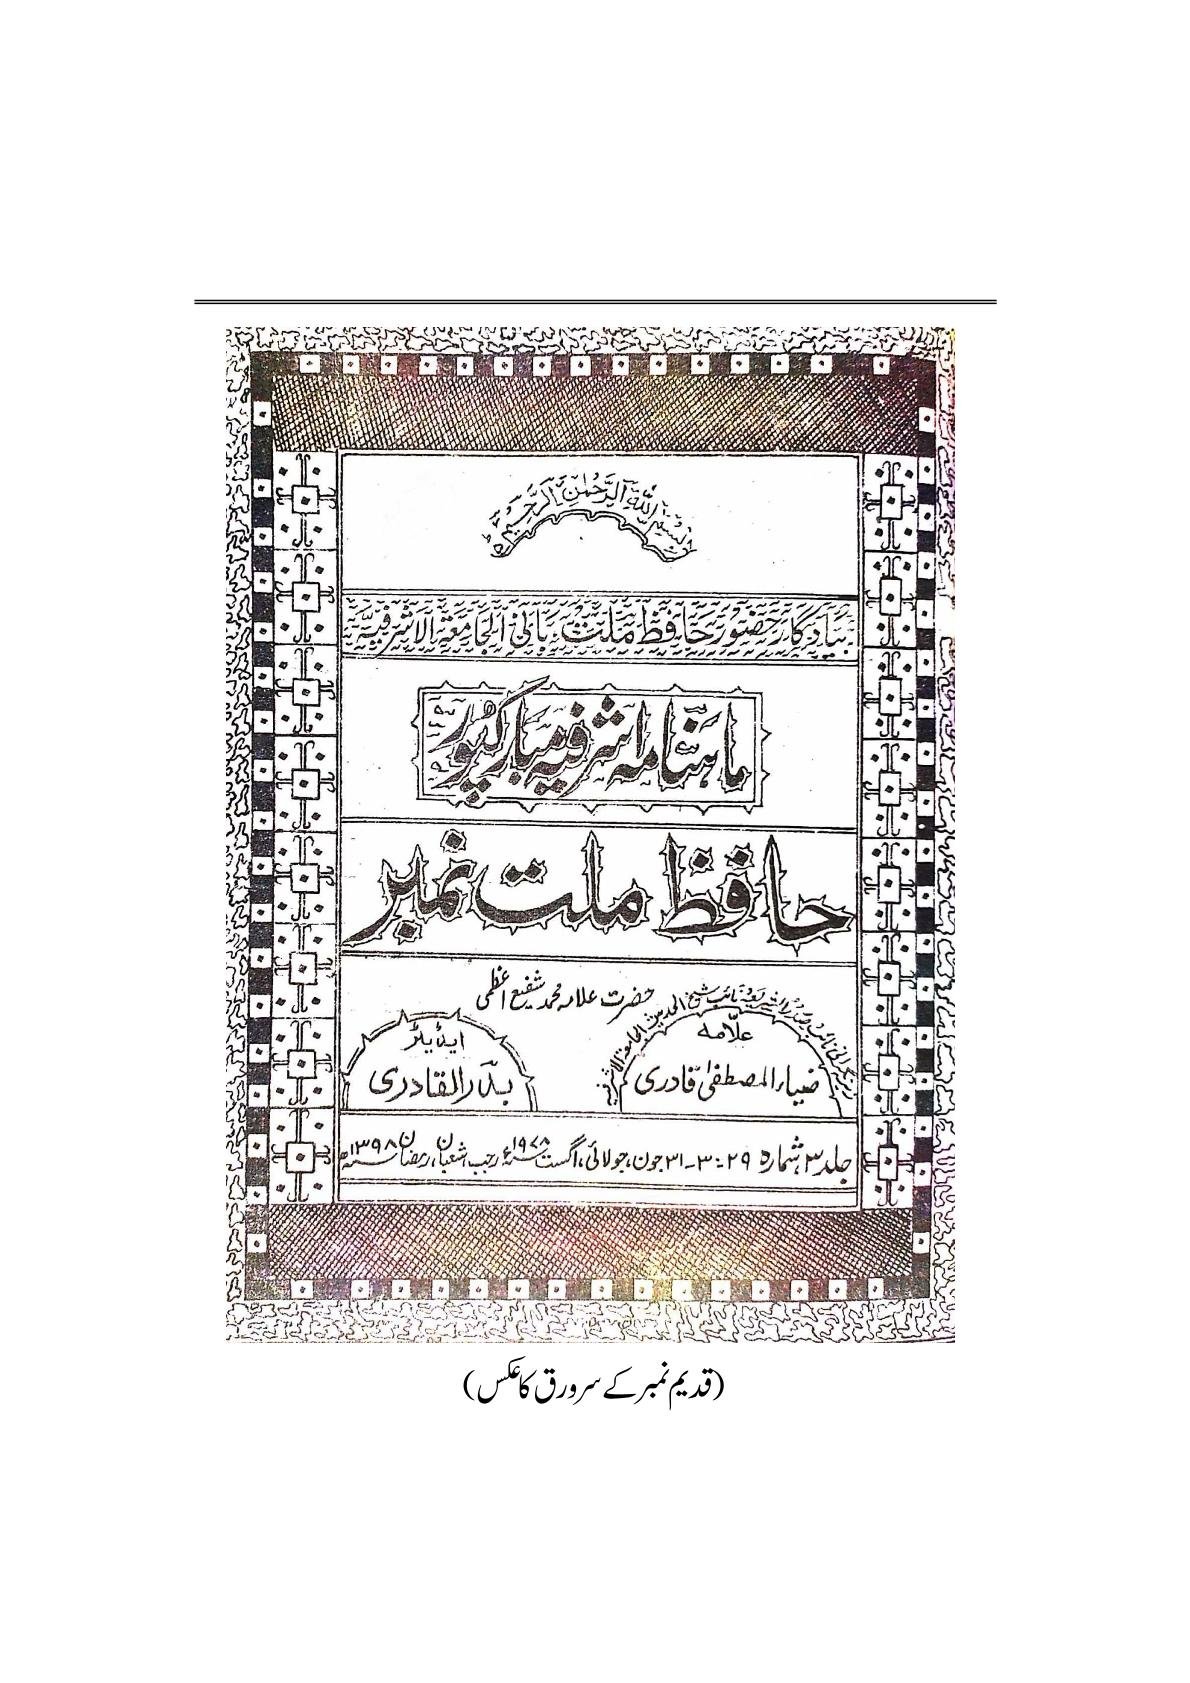 بسم اللہ الرحمٰن الرحیم
بیادگار حضور حافظ ملت بانی الجامعۃ الاشرفیہ
ماہنامہ اشرفیہ مبارکپور
حافظ ملت نمبر
حضرت علامہ محمد شفیع اعظمی
زیر نگرانی نائب صدر الشریعہ و نائب شیخ الحدیث الجامعۃ الاشرفیہ
علّامہ
ضیاء المصطفیٰ قادری
ایڈیٹر
بدر القادری
جلد ۳ شمارہ ۲۹-۳۰-۳۱ جون، جولائی، اگست ۱۹۷۸ء رجب، شعبان، رمضان ۱۳۹۸ھ
(قدیم نمبر کے سرورق کا عکس)